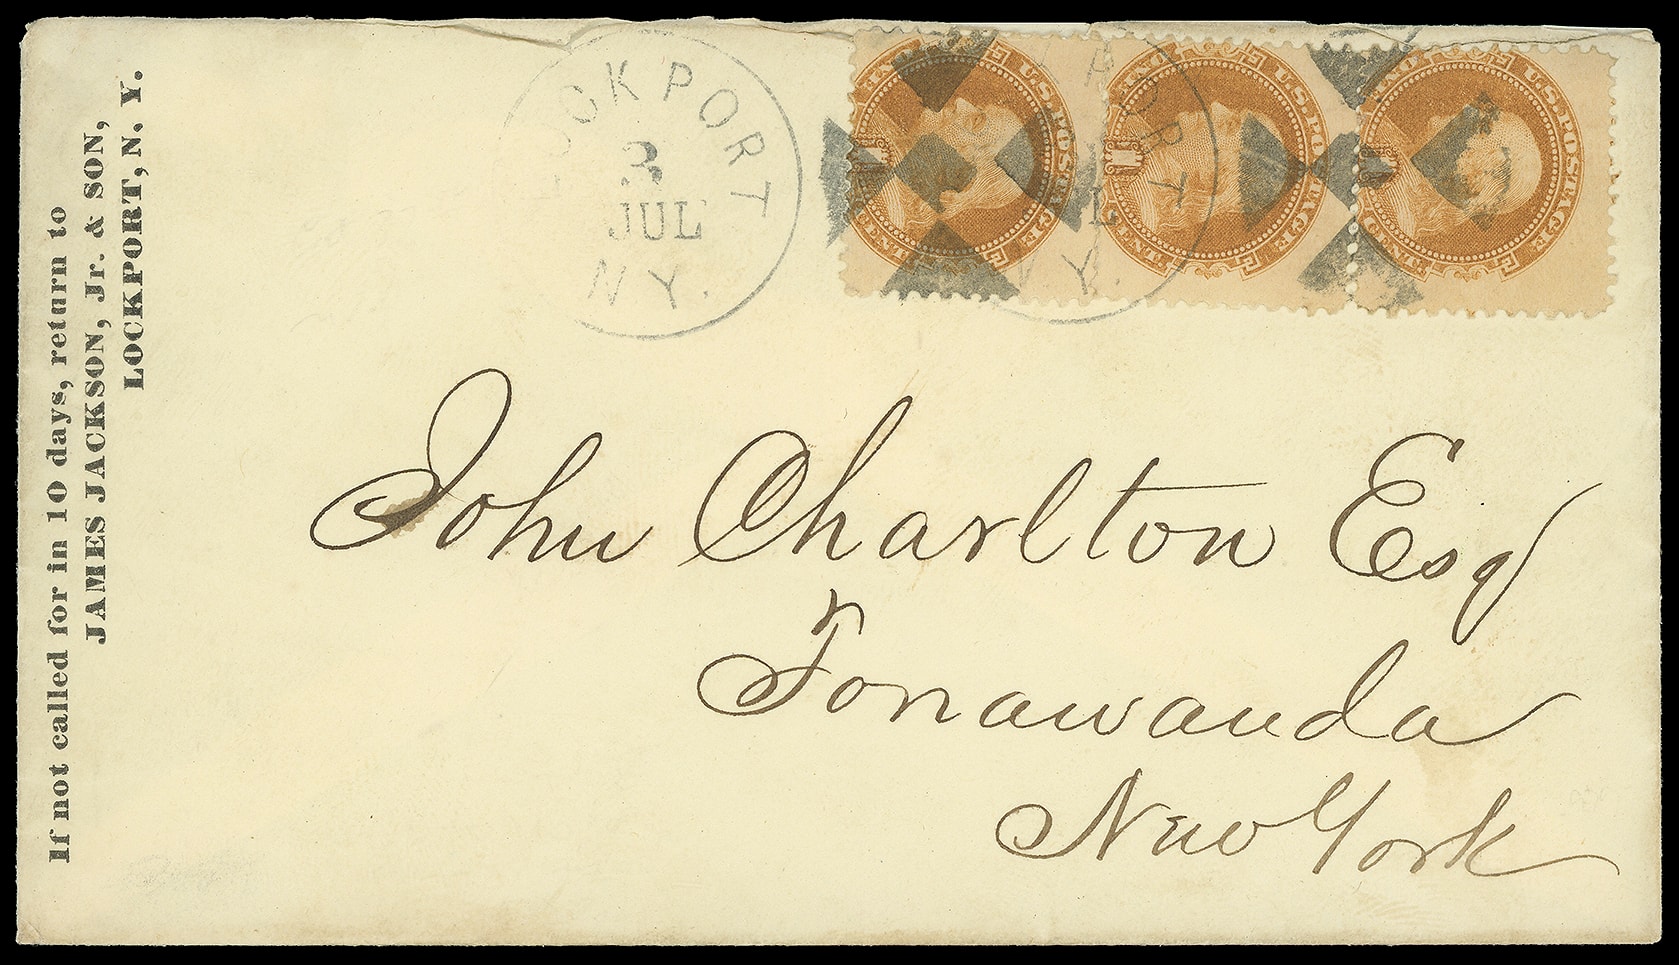 If not called for in 10 days, return to
JAMES JACKSON, Jr. & SON,
LOCKPORT, N. Y.
LOCKPORT
3
JUL
N Y.
U.S. POSTAGE
1
U.S. POSTAGE
1
U.S. POSTAGE
John Charlton Esq
Tonawanda
New York